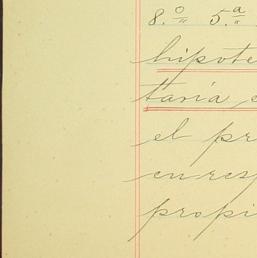 8.º 5.ª
hipote
taria
el pr
en res
propi